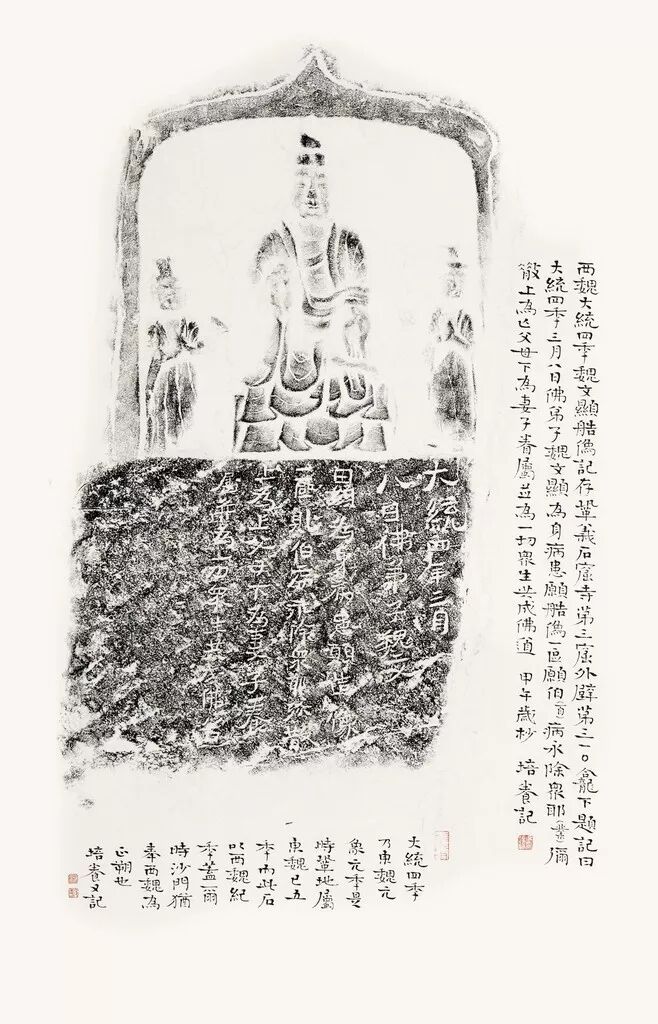 西魏大統四秊魏文顯艁像記存鞏義石窟寺第三窟外壁第二一〇龕下題記曰
大統四秊二月八日佛弟子魏文顯為身病患願艁像一區願佰(百)病永除眾耶(業)彌
散上為亡父母下為妻子眷屬並為一切眾生共成佛道 甲午歲杪 培養記
大統四年二月
八日佛弟子魏文
顯為身病患願造像
一區願佰病永除眾耶弥散
上為亡父母下為妻子眷
屬并為一切眾生共
大統四秊
乃東魏元
象元秊是
時鞏地屬
東魏已五
秊而此石
以西魏紀
秊蓋一爾
時沙門猶
奉西魏為
正朔也
培養又記